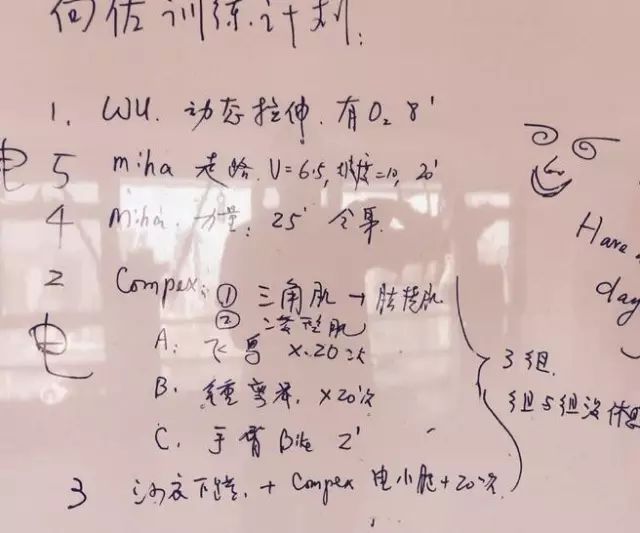 训练计划:
1. WU. 动态拉伸. 有O₂ 8'
电 5 miha 走路. V=6.5, 坡度=10, 20'
4 Miha. 力量: 25' 全身
2 Compex: ① 三角肌 → 肱桡肌
②
A: 飞鸟 ×20次
B. ×20次
C. 手臂 Bike 2'
电
3组
组与组没休息
3 下蹲. + Compex 电小腿 + 20次
Have a
day